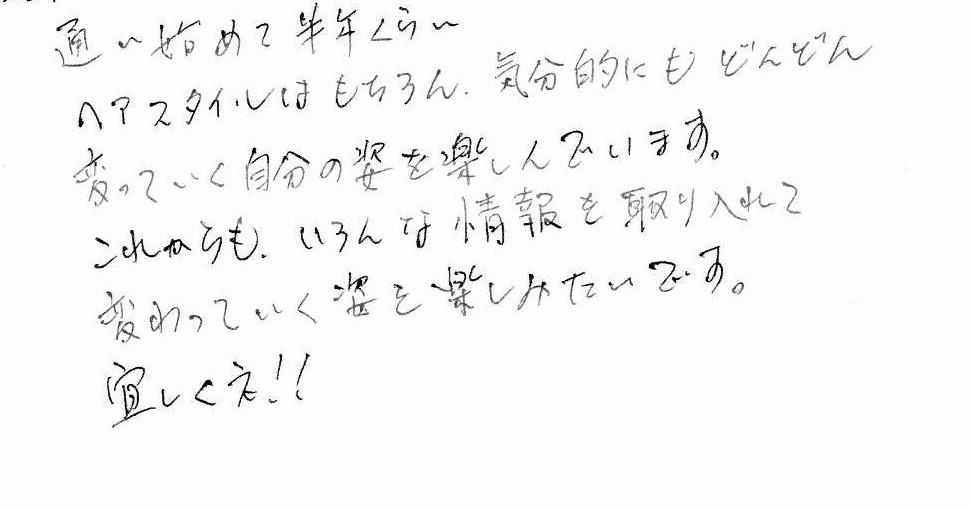 通い始めて半年くらい
ヘアスタイルはもちろん、気分的にもどんどん
変っていく自分の姿を楽しんでいます。
これからも、いろんな情報を取り入れて
変わっていく姿を楽しみたいです。
宜しくえ!!